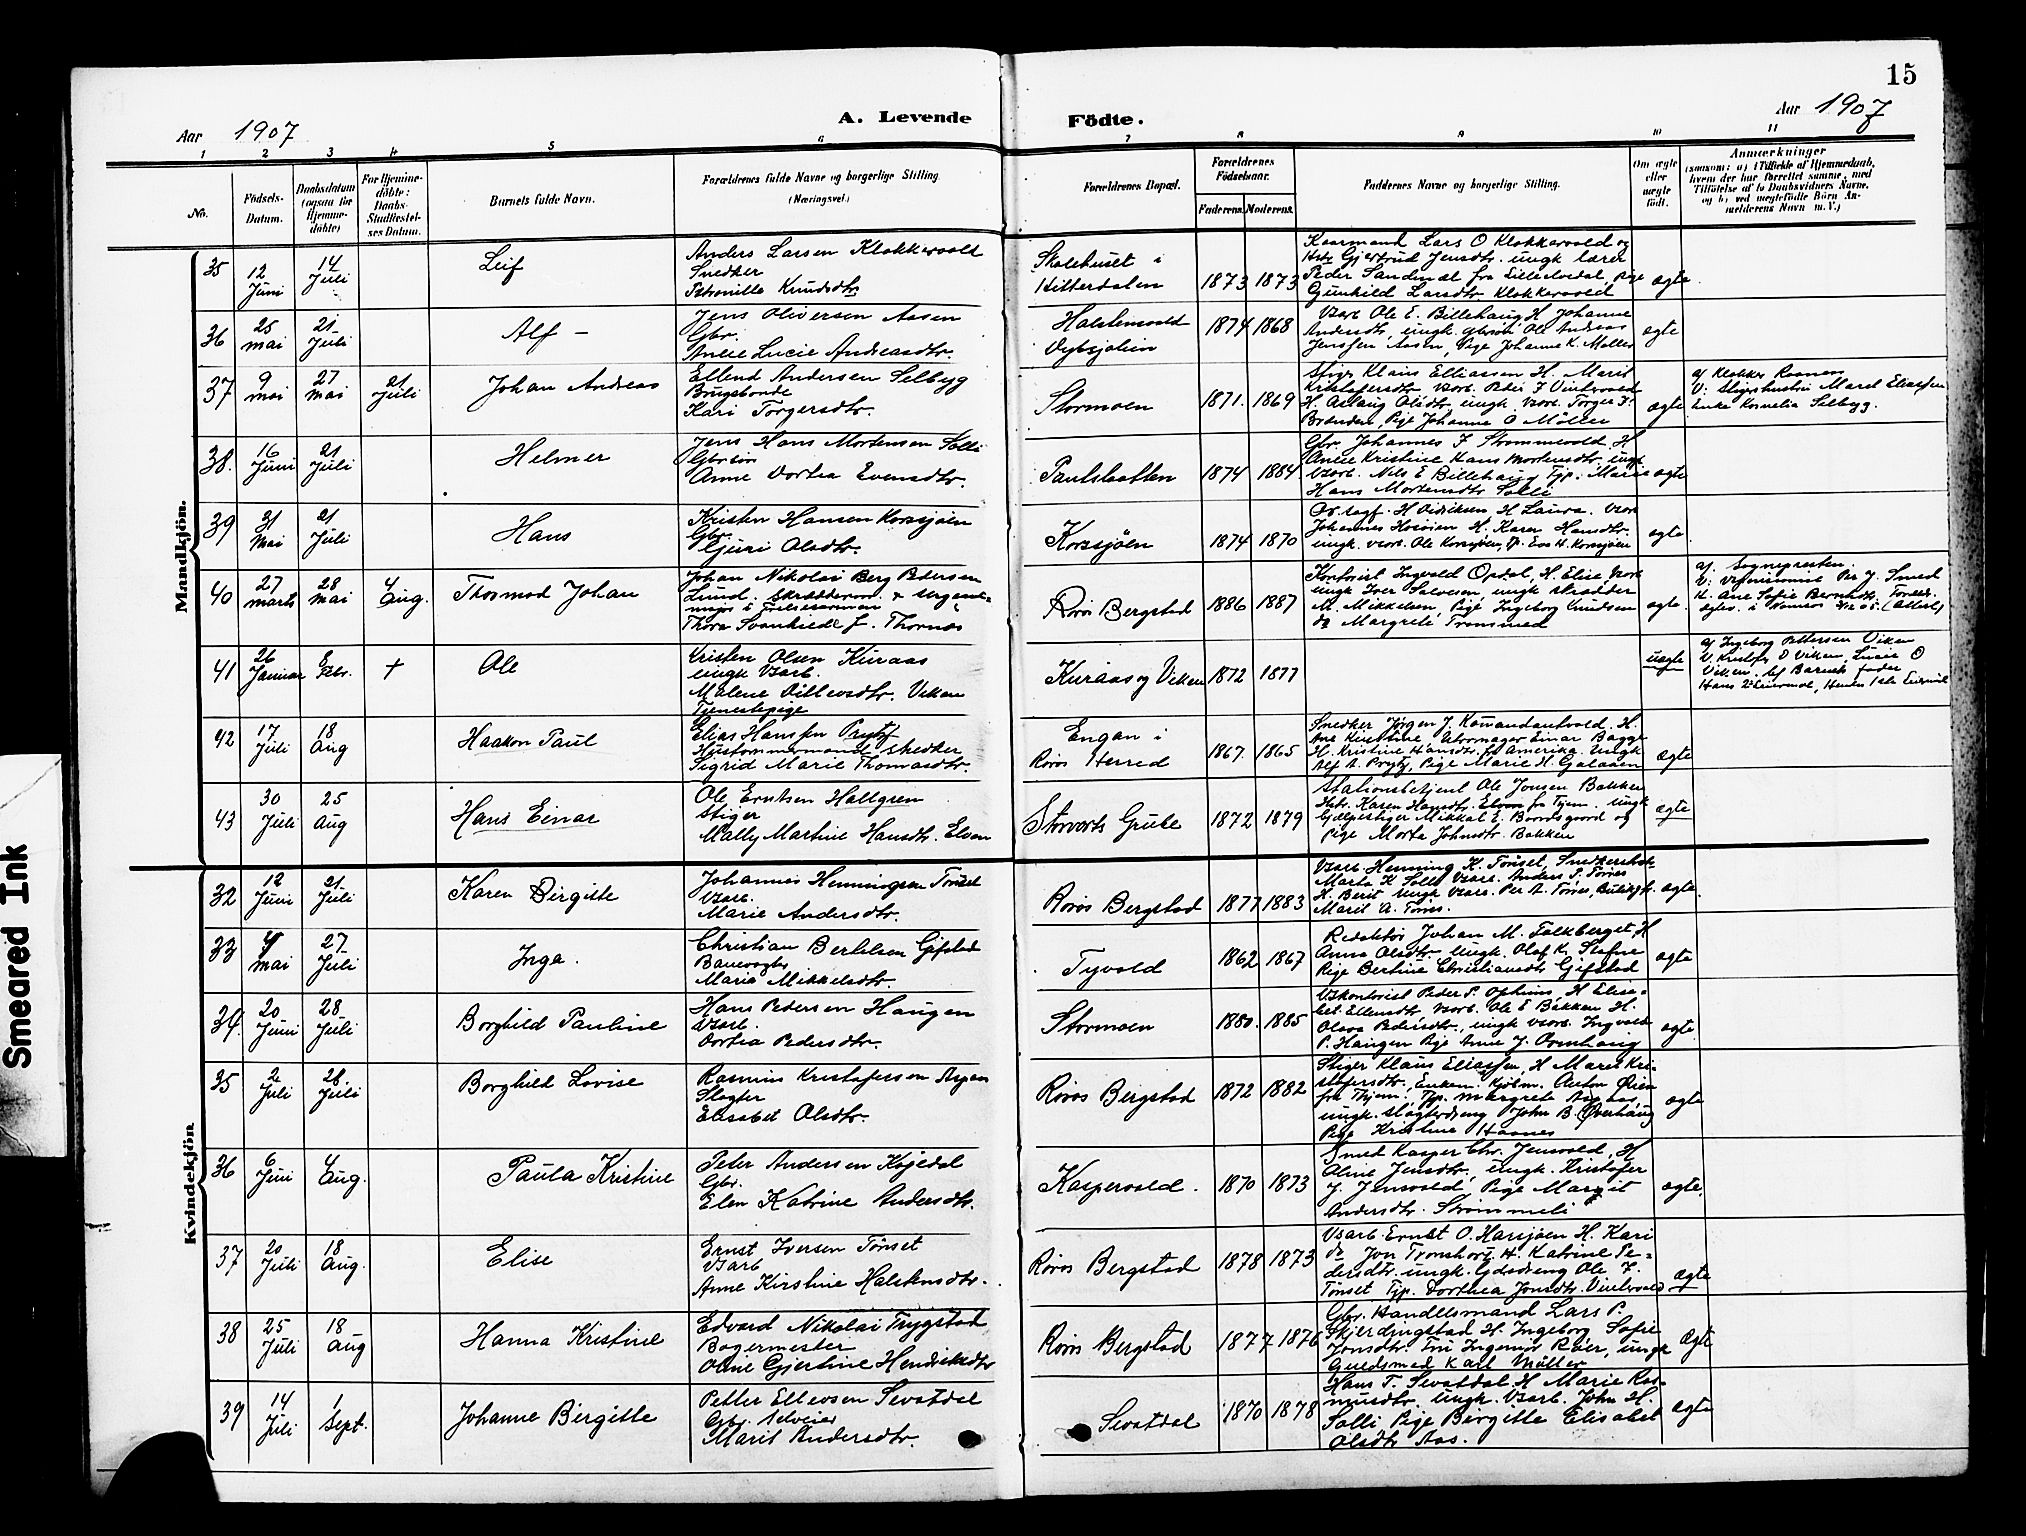 15
Aar 1907
A. Levende
Födte.
Aar 1907
1 2 3 4 5 6 7 8 9 10 11
No.
Födsels-
Datum.
Daabsdatum
(ogsaa för
Hjemme-
döbte)
For Hjemme-
döbte:
Daabs-
Stadfæstel-
ses Datum.
Barnets fulde Navn.
Forældrenes fulde Navne og borgerlige Stilling.
(Næringsvei.)
Forældrenes Bopæl.
Forældrenes
Födselsaar.
Faderens. Moderens.
Faddernes Navne og borgerlige Stilling.
Om ægte
eller
uægte
födt.
Anmærkninger
Mandkjön.
35
12
Juni
14
Juli
Leif
Anders Larsen Klokkervold
Snedker
Petronille Knudsdtr
Skolehuset i
Hitterdalen
1873 1873
Kaarmand Lars O Klokkervold og
Hstr Gjertrud Jensdtr. ungk lærer
Gunhild Larsdtr Klokkervold
ægte
36
25
mai
21
Juli
Alf –
Jens Oliversen Aasen
Gbr.
Anne Lucie Andreasdtr.
1874 1868
Vsarb Ole E. Billehaug H Johanne
Andersdtr, ungk. Ole Andreas
Jenssen Aasen, Pige Johanne K. Møller
ægte
37
9
mai
27
mai
21
Juli
Johan Andreas
Ellend Andersen Selbyg
Brugsbonde
Kari Torgersdtr.
Stormoen
1871. 1869
Stiger Klaus Elliassen H. Marit
Kristofersdtr, vsarb. Peder J Vintervold
H. Aslaug Olsdtr ungk Vsarb. Torger J.
Pige Johanne O Möller
ægte
af Klokker
V: Stigerhustru Maret Eliassen
Enke Kornelia Selbyg.
38.
16
Juni
21
Juli
Helmer
Jens Hans Mortensen Solli
Gbrsön
Anne Dortea Evensdtr.
1874 1884
Gbr. Johannes J Strømmevold, H
Anne Kristine Hans Mortensdtr, ungk
Vsarb. Nils E Billehaug Tjp. Marie
Hans Mortensdtr Solli
ægte
39
31
Mai
21
Juli
Hans
Kristen Hansen Korssjøen
Gbr.
Guri Olsdtr.
Korssjøen
1874 1870
H Laura. Vsarb
Johannes H. Karen Hansdtr
ungk. vsarb. Ole Korssjøen,
ægte.
40
27
marts
28
Mai
4
Aug.
Thormod Johan
Johan Nikolai Berg Pedersen
Lund. Skræddersvend & Sergeant-
major i Frelsesarmeen
Thora Svanhilde J. Thornæs
Røros Bergstad
1886 1887
Kontorist Ingvald Opdal, H. Elise,
ungk Iver Salvesen, ungk skrædder
M. Mikkelsen, Pige Ingeborg Knudsen
do Margrete Tronsmed
ægte.
af. Sognepresten.
V: Per J. Smed
H. Ane Sofie Berntsdtr, Foreldr.
41
26
Januar
8
Febr.
+
Ole
Kristen Olsen Kuraas
ungk Vsarb.
Malene Ditlevsdtr. Viken
Tjenestepige
Kuraas og Viken
1872 1877
uægte
af Ingeborg Pettersen Viken
V. Kristofer O Viken, Lucie O
Viken. Af Barnets fader
42
17
Juli
18
Aug
Haakon Paul
Elias Hanssen Prytz
Hustømmermand snedker
Sigrid Marie Thomasdtr.
Engan i
Røros Herred
1867. 1865
Snedker Jørgen J. Kommandantvold. H.
Ane Kirstine Urmager Einar Bagge
H. Kristine Hansdtr. fr Amerika. Ungk
Alf A. Prytz, Pige Marie H. Galaaen
ægte
43
30
Juli
25
Aug
Hans Einar
Ole Erntsen Hallgren
Stiger
Mally Martine Hansdtr. Elven
Storvorts Grube
1872 1879
Stationsbetjent Ole Jonsen Bakken
Hstr. Karen Hansdtr. Elven fr Tyen. ungk
Hjælpestiger Mikkal E. Bordsgaard og
Pige Marta Johnsdtr. Bakken
ægte
Kvindekjön
32
12
Juni
21
Juli
Karen Birgitte
Johannes Henningsen Tønset
Vsarb.
Marie Andersdtr.
Røros Bergstad
1877 1883
Vsarb. Henning K. Tønset,
Marta K Solli Vsarb. Anders P. Tørres
H. Berit ungk Vsarb. Per A. Tørres,
Marit A. Tørres.
ægte.
33
mai
27
Juli
Inga.
Christian Bertelsen Gifstad
Banevogter
Marie Mikkelsdtr.
Tyvold
1862 1867
Redaktør Johan M. Falkberget, H
Anna Olsdtr. Ungk. Olaf K. Stefne
Pige Bertine Christiansdtr Gifstad
ægte
34.
20
Juni
28
Juli
Borghild Pauline
Hans Pedersen Haugen
Vsarb.
Dortea Pedersdtr.
Stormoen
1880. 1885
Vskontorist Peder P. Ophus, H Elisa-
bet Ellensdtr, Vsarb. Ole E Bakken H.
Olava Pedersdtr., ungk vsarb. Ingvald
P. Haugen Pige Anne J. Ormhaug
ægte
35
2
Juli
28
Juli
Borghild Lovise
Rasmus Kristofersen Aspaas
Slagter
Elisabet Olsdtr.
Røros Bergstad
1872 1882
Stiger Klaus Eliassen, H Maret Kri-
stofersdtr, Enkem. Kjøbm. Anton Øien
fra Tyen. Tjp. Margrete Aspaas,
ungk. slagterdreng John B. Øverhaug
Pige Kristine Haanes
ægte
36
6
Juni
4
Aug.
Paula Kristine
Peter Andersen Kojedal
Gbr.
Elen Katrine Andersdtr.
Kaspervold.
1870 1873
Smed Kasper Chr. Jensvold, H
Oline Jensdtr, ungk. Kristofer
J. Jensvold, Pige Margit
Andersdtr. Strømmeli
ægte.
37
20
Juli
18
Aug.
Elise
Ernst Iversen Tønset
Vsarb
Anne Kirstine Halstensdtr.
Røros Bergstad
1878 1873
Vsarb. Ernst O. Harsjøen H. Kari
do Jon Tronshart H. Katrine Pe-
dersdtr. ungk. Gdsdreng Ole J.
Tønset Tjp. Dorthea Jonsdtr. Vintervold
ægte
38
25
Juli
18
Aug
Hanna Kristine
Edvard Nikolai Trygstad
Bagermester
Oline Gjertine Hendriksdtr
Røros Bergstad
1877 1876
Gbr. Handelsmand Lars P.
Skjerdingstad H. Ingeborg Sofie
Jonsdtr. Fru Ingeniør Røer, ungk
Guldsmed Karl Möller
ægte
39
14
Juli
1
Sept.
Johanne Birgitte
Petter Ellevsen Sevatdal
Gbr. Selveier
Marit Andersdtr.
Sevatdal
1870 1878
Hans T. Sevatdal H Marie Ras-
musdtr. ungk. Vsarb. John H.
Solli Pige Birgitte Elisabet
Olsdtr Aas.
ægte
Smeared Ink